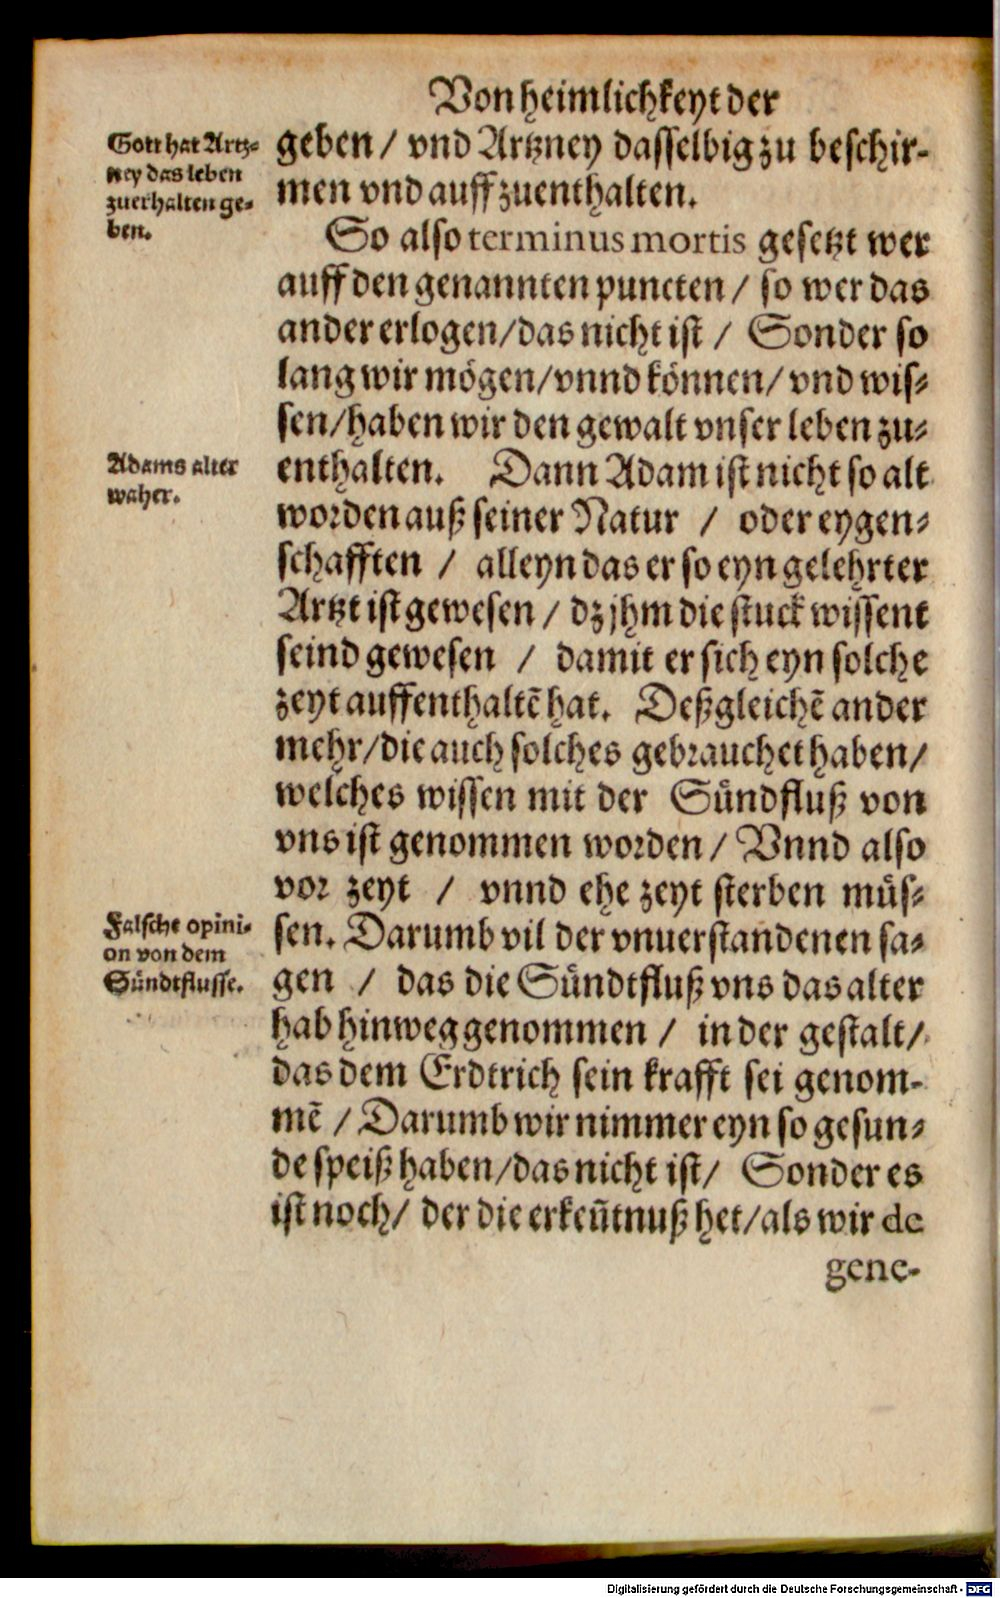 Von heimlichkeyt der
Gott hat Artz-
ney das leben
zuerhalten ge-
ben.
geben / vnd Artzney dasselbig zu beschir-
men vnd auff zuenthalten.
So also terminus mortis gesetzt wer
auff den genannten puncten / so wer das
ander erlogen/das nicht ist / Sonder so
lang wir mögen/vnnd können/ vnd wis-
sen/haben wir den gewalt vnser leben zu-
Adams alter
waher.
enthalten. Dann Adam ist nicht so alt
worden auß seiner Natur / oder eygen-
schafften / alleyn das er so eyn gelehrter
Artzt ist gewesen / dz jhm die stuck wissent
seind gewesen / damit er sich eyn solche
zeyt auffenthaltẽ hat. Deßgleichẽ ander
mehr/die auch solches gebrauchet haben/
welches wissen mit der Sündfluß von
vns ist genommen worden / Vnnd also
vor zeyt / vnnd ehe zeyt sterben müs-
Falsche opini-
on von dem
Sündtflusse.
sen. Darumb vil der vnuerstandenen sa-
gen / das die Sündtfluß vns das alter
hab hinweg genommen / in der gestalt/
das dem Erdtrich sein krafft sei genom-
mẽ / Darumb wir nimmer eyn so gesun-
de speiß haben/das nicht ist/ Sonder es
ist noch/ der die erkeñtnuß het/als wir de
gene-
Digitalisierung gefördert durch die Deutsche Forschungsgemeinschaft - DFG